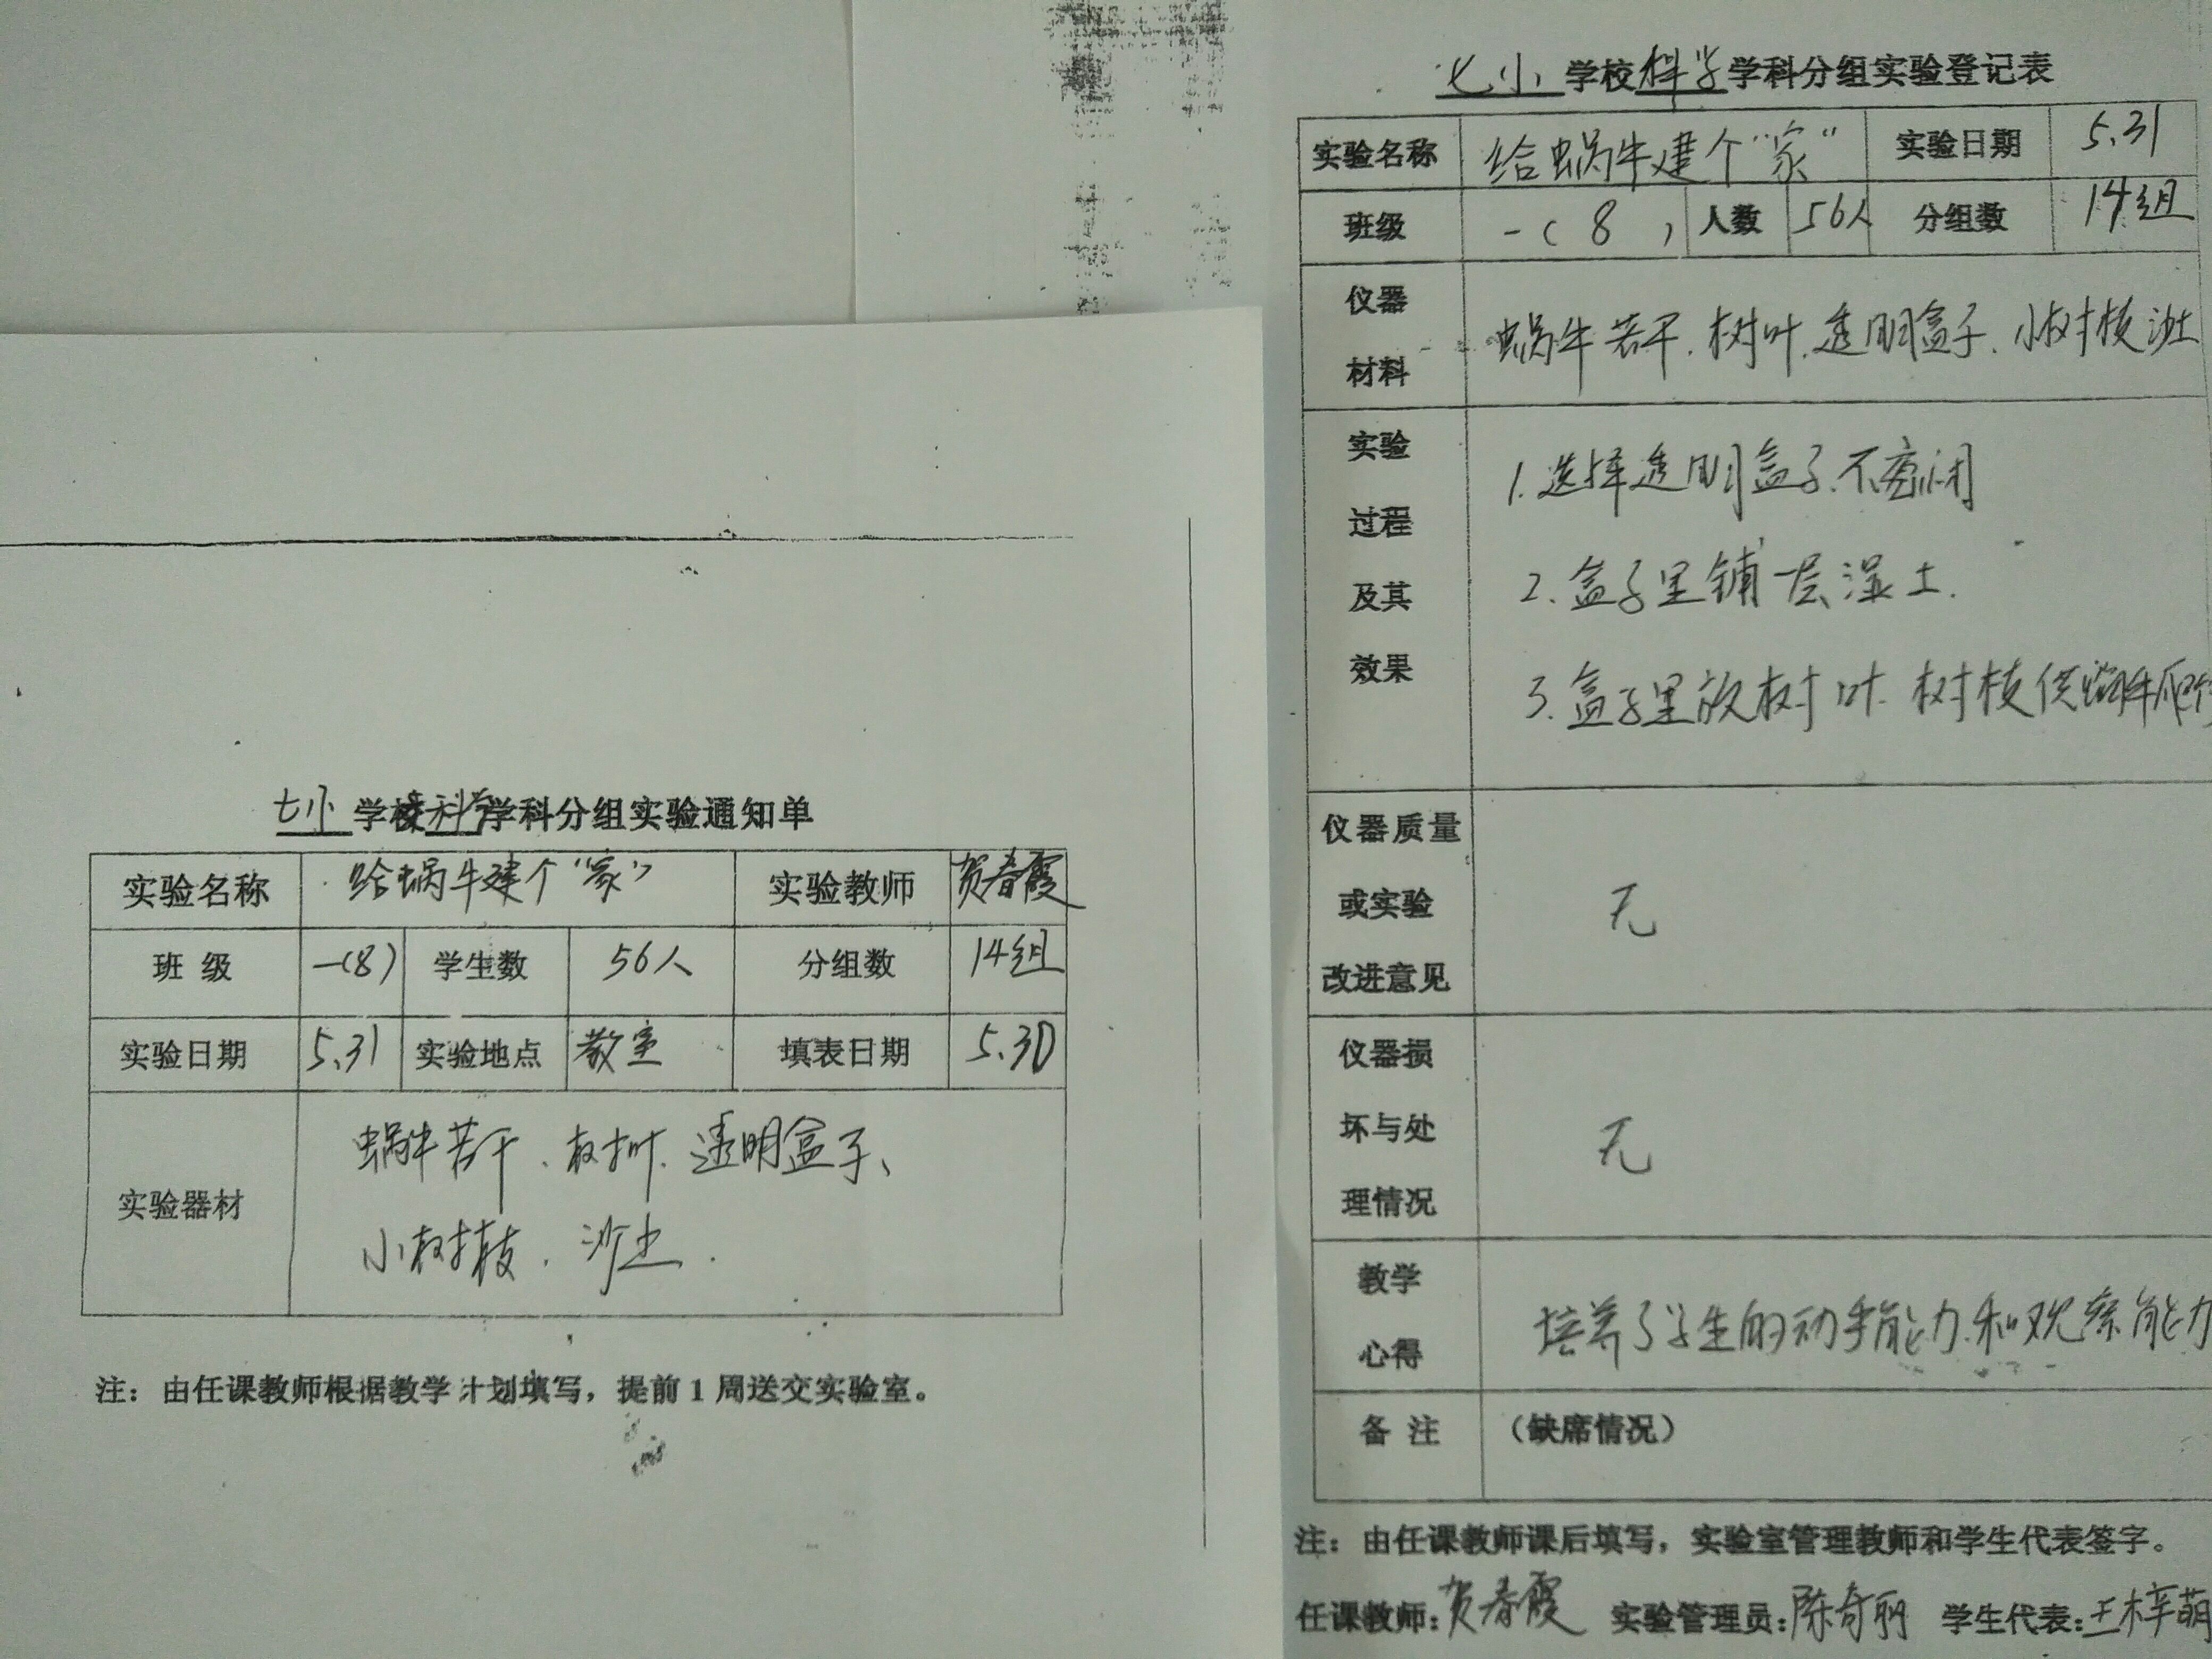 七小学校科学学科分组实验通知单
实验名称 给蜗牛建个“家” 实验教师 贺春霞
班 级 一(8) 学生数 56人 分组数 14组
实验日期 5.31 实验地点 教室 填表日期 5.30
实验器材
蜗牛若干、树叶、透明盒子、
小树枝、沙土.
注：由任课教师根据教学计划填写，提前1周送交实验室。
七小学校科学学科分组实验登记表
实验名称 给蜗牛建个“家” 实验日期 5.31
班级 一(8) 人数 56人 分组数 14组
仪器
材料
蜗牛若干、树叶、透明盒子、小树枝 沙土
实验
过程
及其
效果
1.选择透明盒子、不密闭
2.盒子里铺一层湿土.
3.盒子里放树叶、树枝供蜗牛爬
仪器质量
或实验
改进意见
无
仪器损
坏与处
理情况
无
教学
心得
培养了学生的动手能力和观察能力
备 注 （缺席情况）
注：由任课教师课后填写，实验室管理教师和学生代表签字。
任课教师:贺春霞 实验管理员:陈奇丽 学生代表:王梓萌